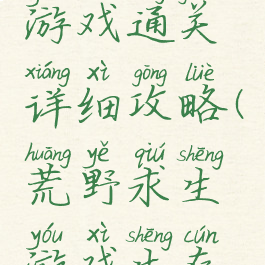 游戏通关
xiáng xì gōng lüè
详细攻略(
huāng yě qiú shēng
荒野求生
yóu xì shēng cún
游戏生存